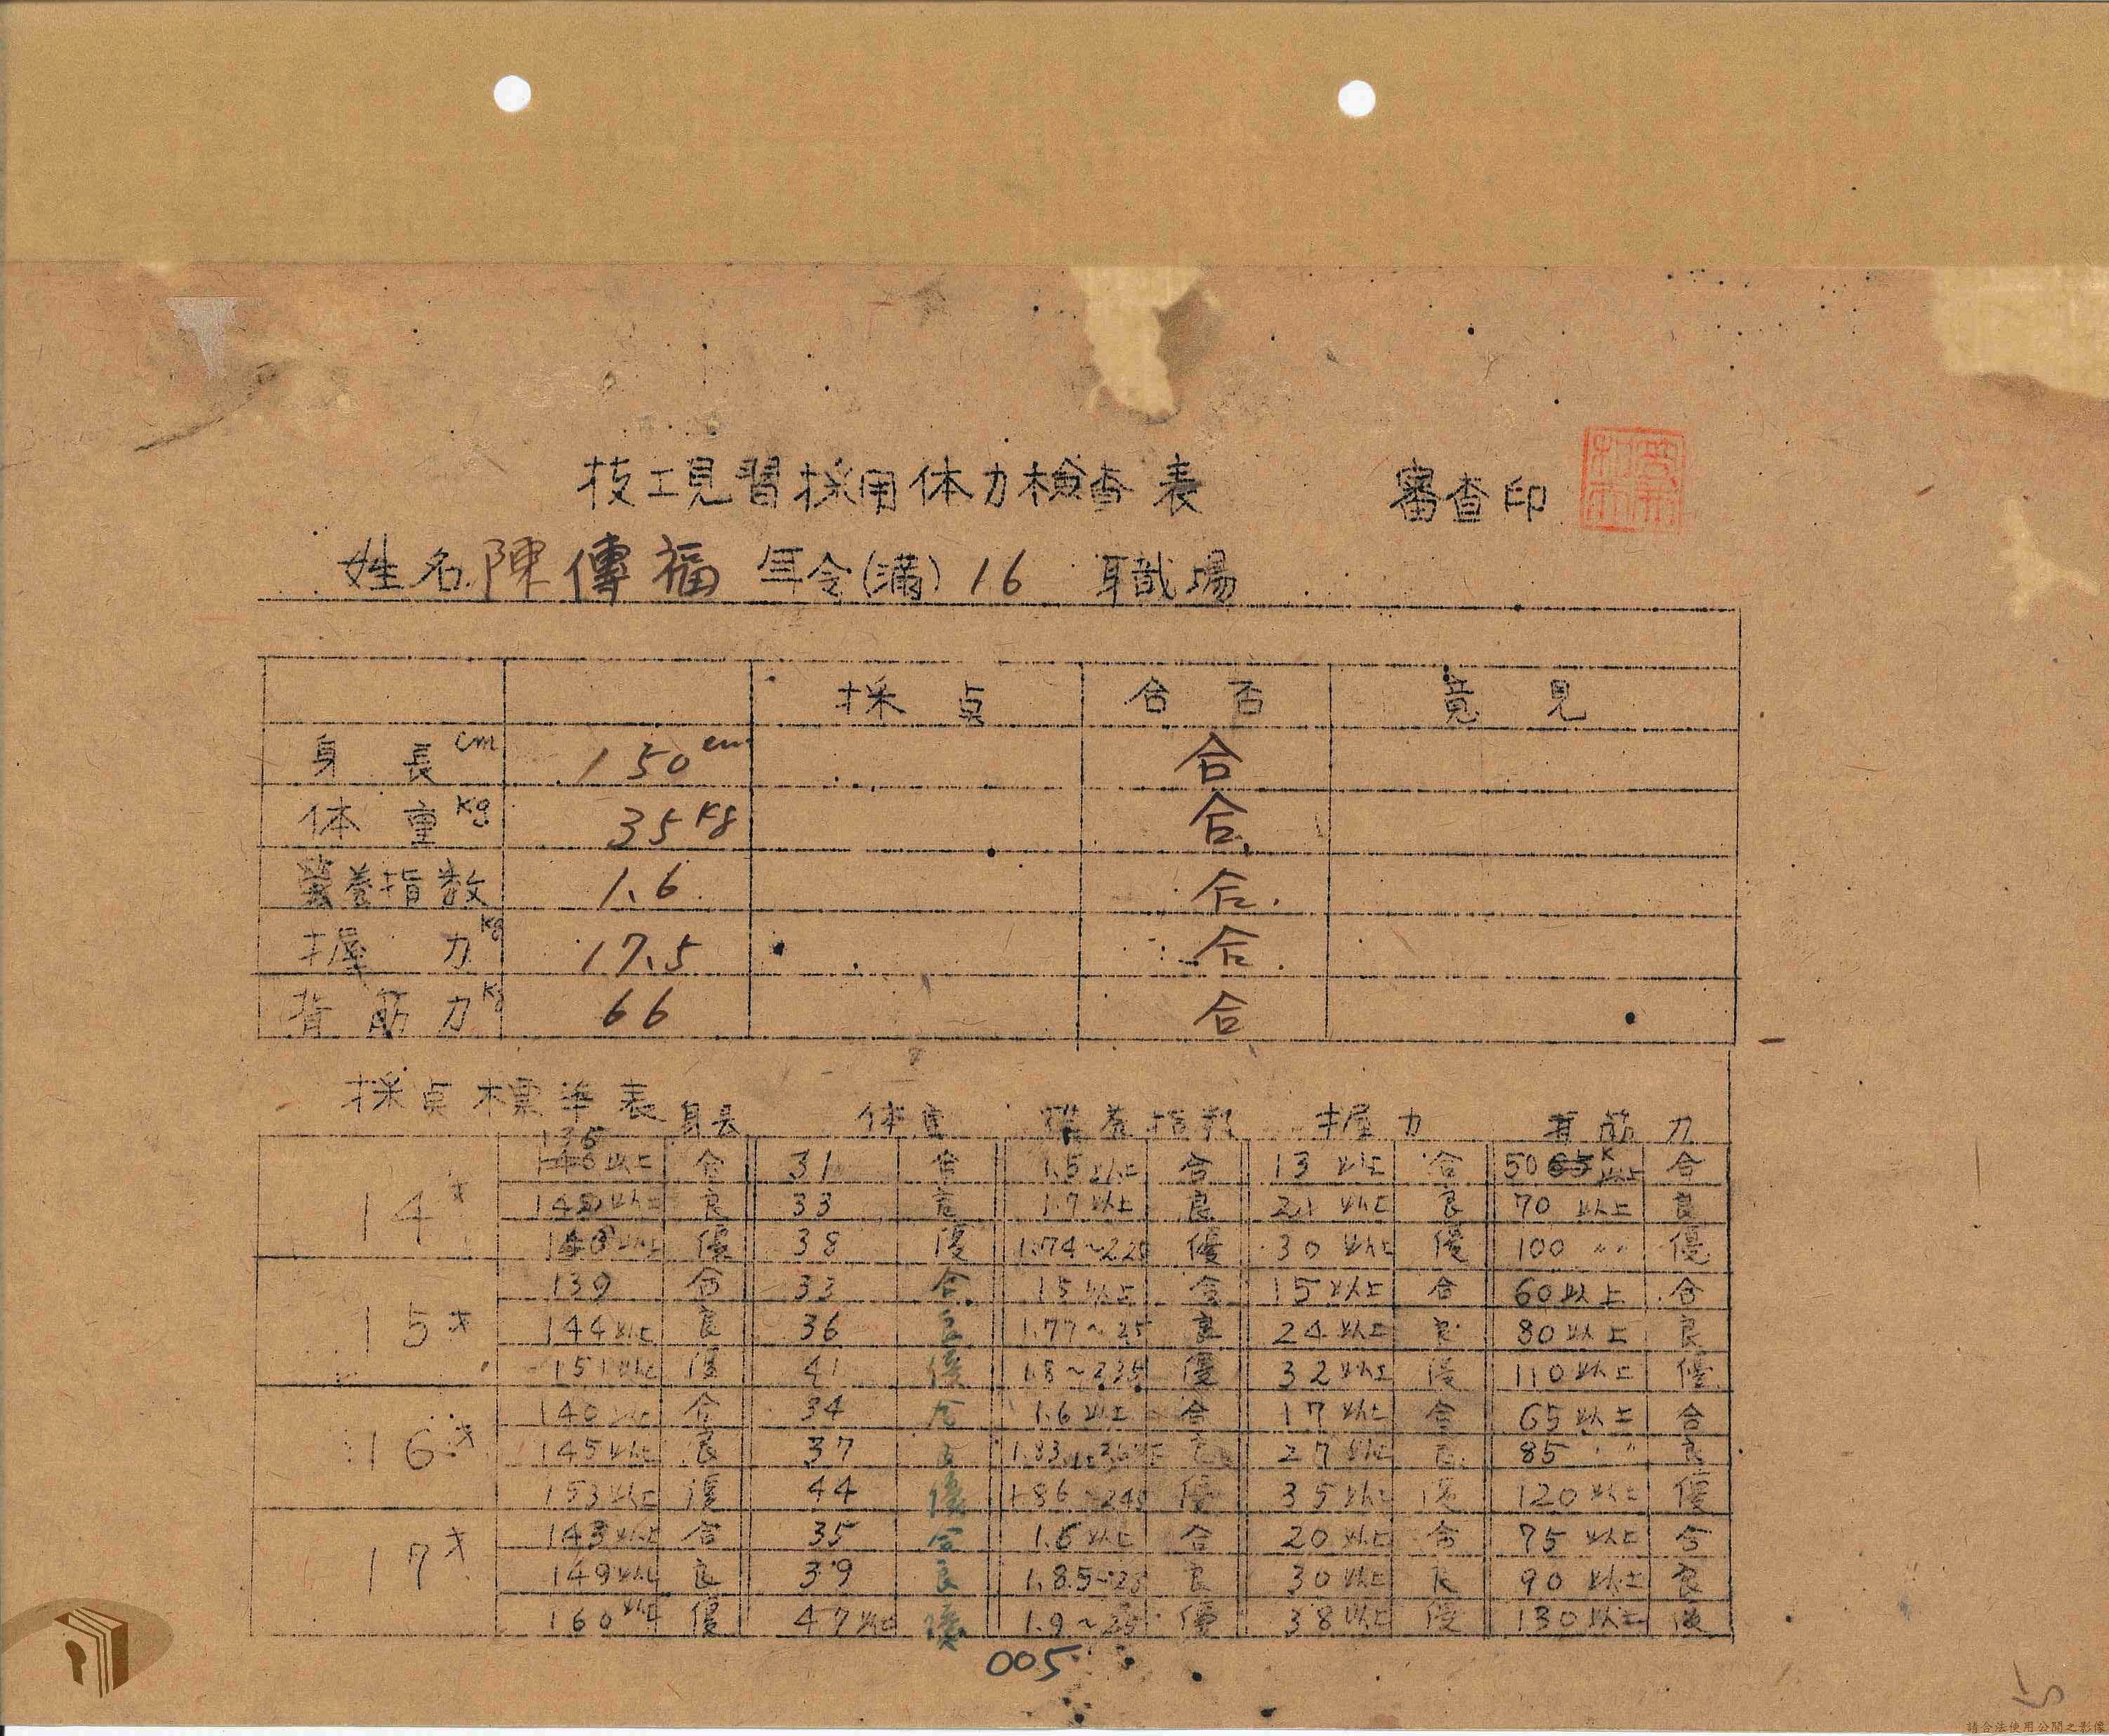 技工見習採用体力檢查表 審查印
姓名 陳傳福 年令(満) 16 職場
採点 合否 意見
身長cm 150cm 合
体重kg 35Kg 合
営養指数 1.6 合
握力kg 17.5 合
背筋力Kg 66 合
採点標準表 身長 体重 営養指数 握力 背筋力
14才 135 以上 合 31 合 1.5以上 合 13以上 合 50 以上 合
以上 良 33 良 1.7以上 良 21以上 良 70以上 良
以上 優 38 優 1.74~ 優 30以上 優 100 〃 優
15才 139 合 33 合 15以上 合 15以上 合 60以上 合
144以上 良 36 良 1.77~25 良 24以上 良 80以上 良
151以上 優 41 優 1.8~2.35 優 32以上 優 110以上 優
16才 140以上 合 34 合 1.6以上 合 17以上 合 65以上 合
145以上 良 37 良 1.83 良 27以上 良 85 〃 良
153以上 優 44 優 1.86~245 優 35以上 優 120以上 優
17才 143以上 合 35 合 1.6以上 合 20以上 合 75以上 合
149以上 良 39 良 1.85~ 良 30以上 良 90以上 良
160以上 優 47以上 優 1.9~25 優 38以上 優 130以上 優
005
15
請合法使用公開之影像